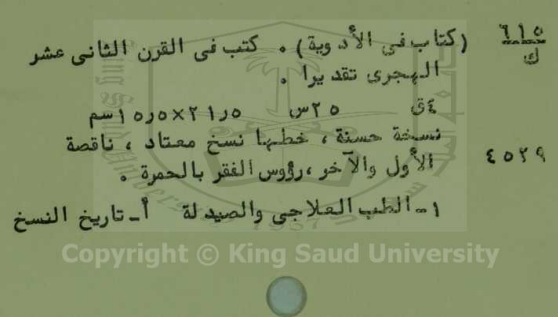 ٦١٥ (كتاب في الأدوية) . كتب في القرن الثاني عشر
ك الهجري تقديرا .
٤ق ٢٥س ٢١٫٥×١٥٫٥سم
نسخة حسنة ، خطها نسخ معتاد ، ناقصة
٤٥٢٩ الأول والآخر ،رؤوس الفقر بالحمرة .
١- الطب العلاجي والصيدلة أ- تاريخ النسخ
Copyright © King Saud University
1957